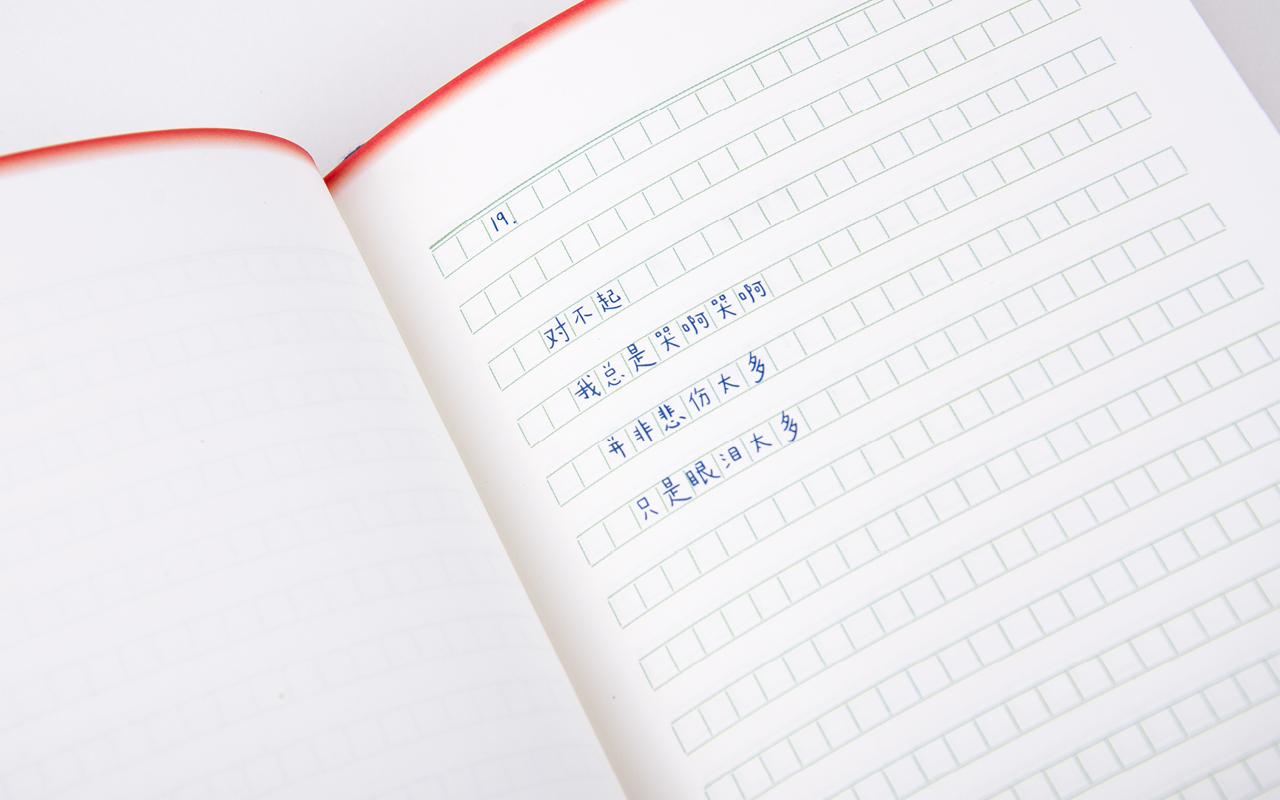 19.
对不起
我总是哭啊哭啊
并非悲伤太多
只是眼泪太多